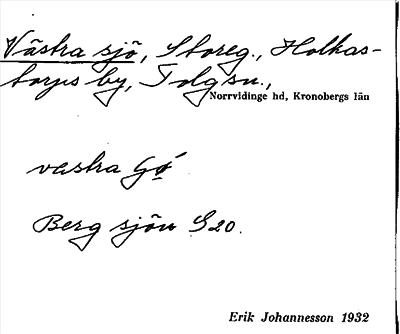 Västra sjö, Storeg., Holkas-
torps by, Tolg sn.,
Norrvidinge hd, Kronobergs län
västra
Berg sjön S20.
Erik Johannesson 1932